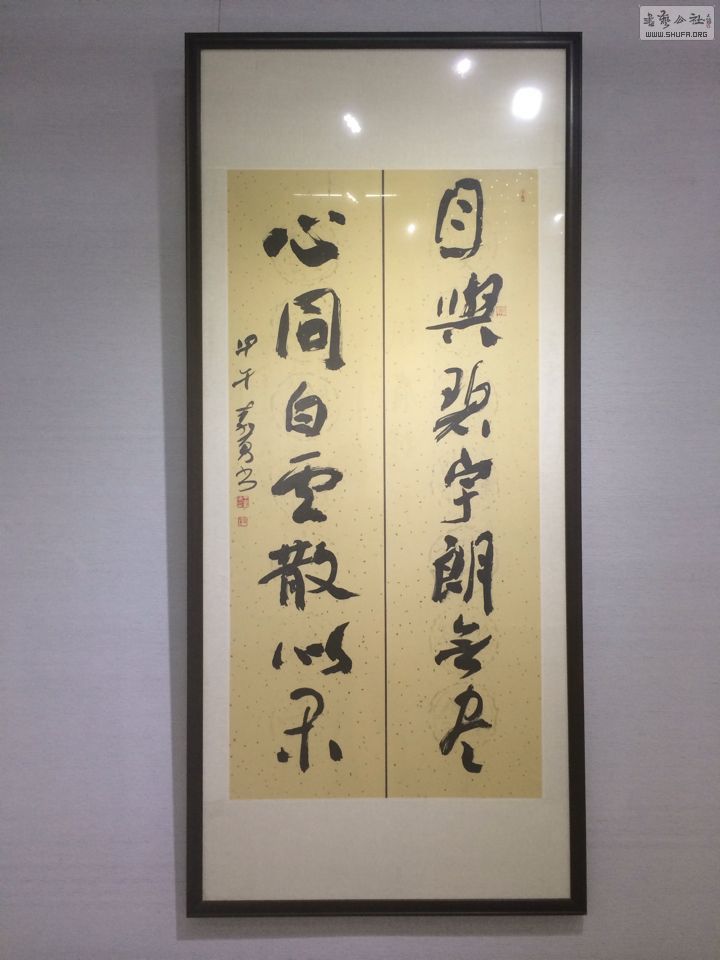 書藝公社
WWW.SHUFA.ORG
目與碧宇朗無尽
心同白雲散以
甲午 勇书